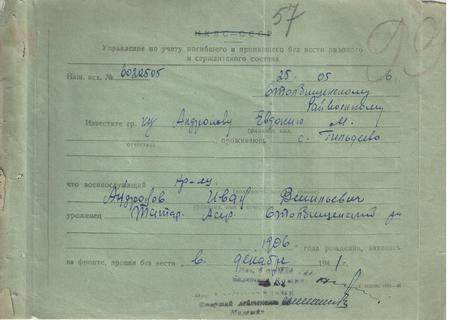 57
99
НКВС-СССР
Управление по учету погибшего и пропавшего без вести рядового
и сержантского состава
Наш. исх. № 6022505 25 05 6
Столбищенскому
Райвоенкому
Известите гр. ку Андронову Евдокию М.
отчество), проживающ с. Тильдеево
что военнослужащий кр-ец
Андронов Иван Васильевич
уроженец Татар. Асср Столбищенский
1906 года рождения, находясь
на фронте, пропал без вести в декабре 1941 г.
Старший лейтенант